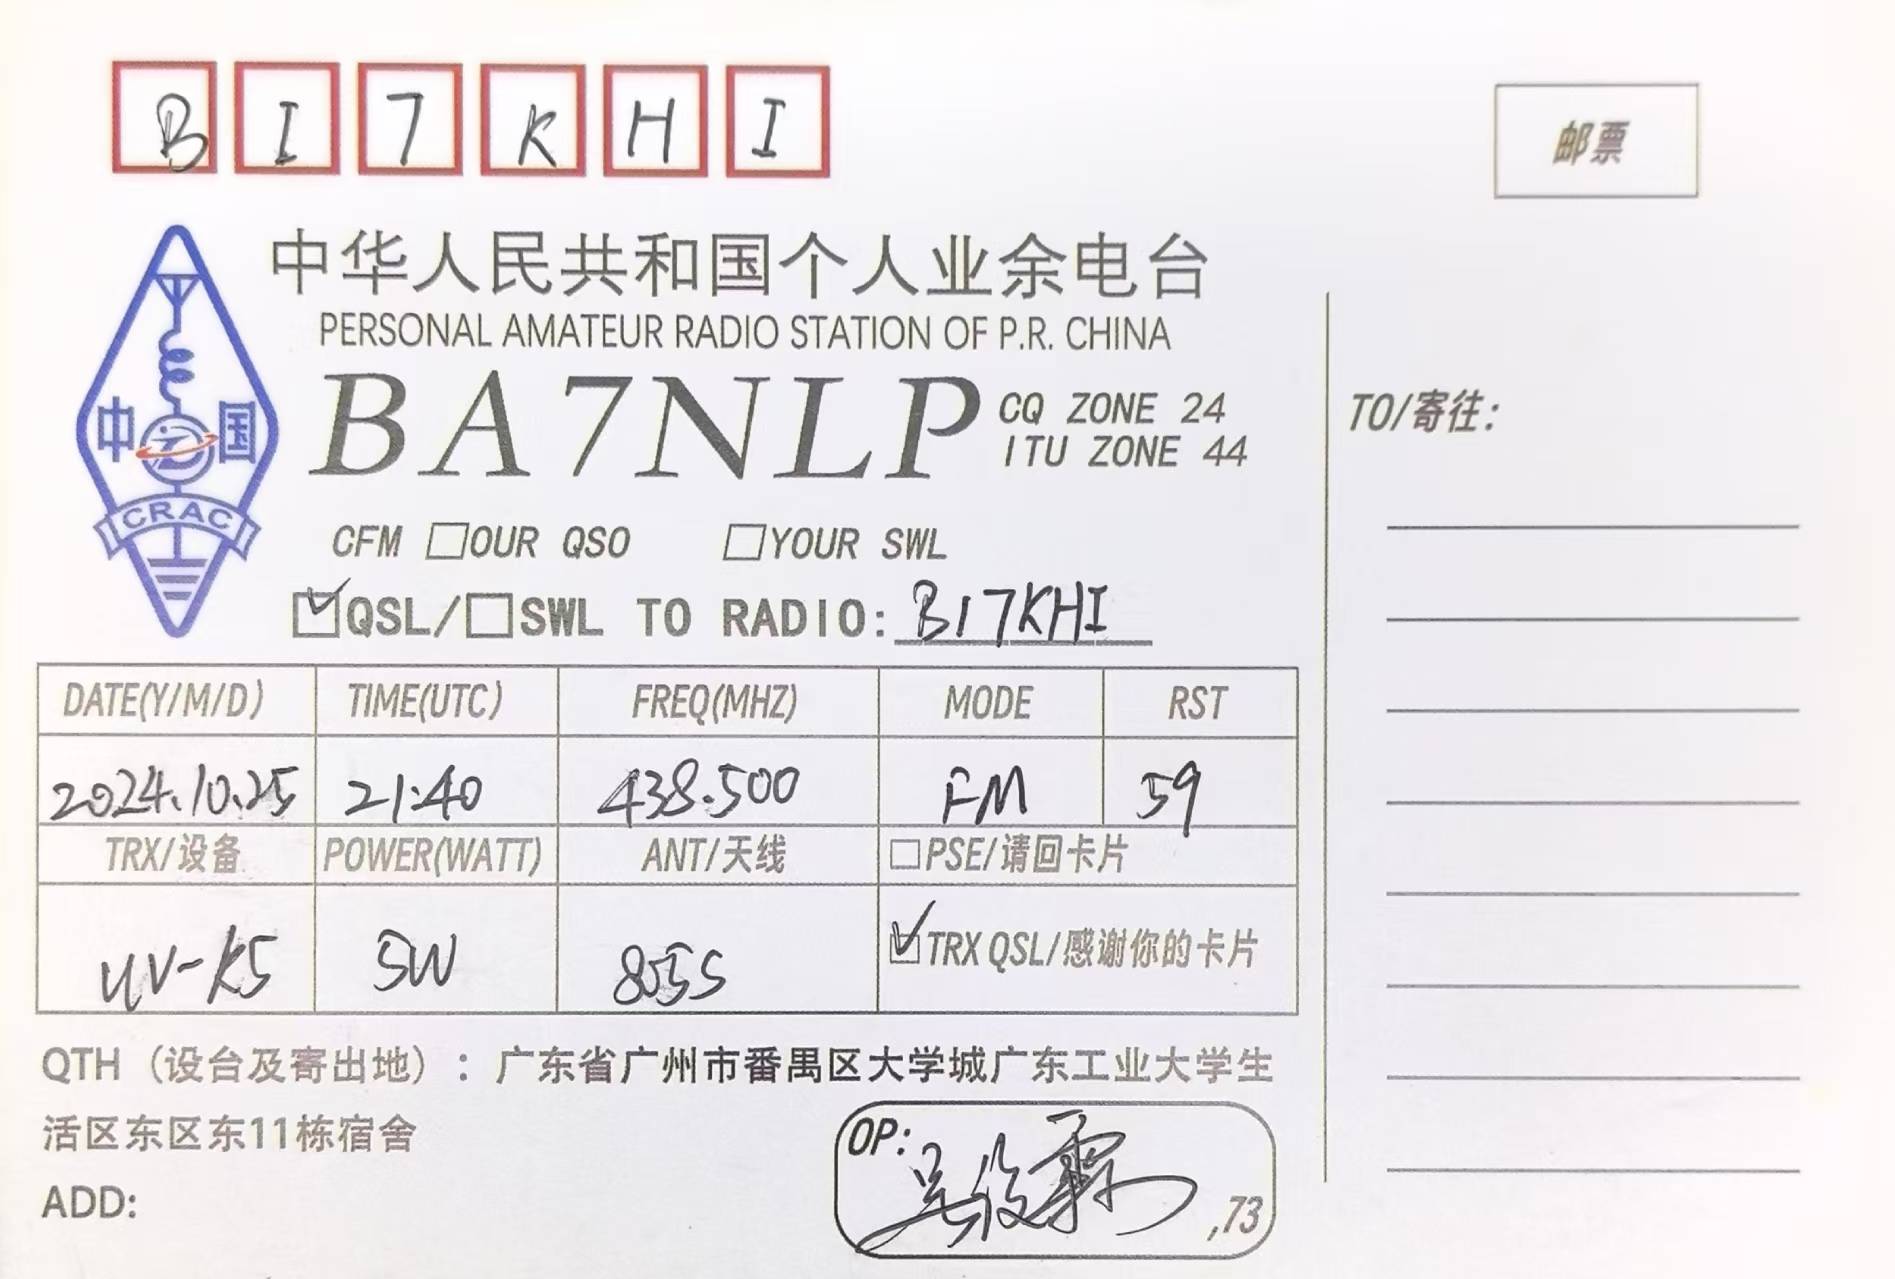 BI7KHI
邮票
中华人民共和国个人业余电台
PERSONAL AMATEUR RADIO STATION OF P.R. CHINA
BA7NLP
CQ ZONE 24
ITU ZONE 44
中国
CRAC
CFM □OUR QSO □YOUR SWL
☑QSL/□SWL TO RADIO: BI7KHI
DATE(Y/M/D) TIME(UTC) FREQ(MHZ) MODE RST
2024.10.25 21:40 438.500 FM 59
TRX/设备 POWER(WATT) ANT/天线 □PSE/请回卡片
UV-K5 5W 805S ☑TRX QSL/感谢你的卡片
QTH（设台及寄出地）：广东省广州市番禺区大学城广东工业大学生
活区东区东11栋宿舍
ADD:
OP: ,73
TO/寄往: